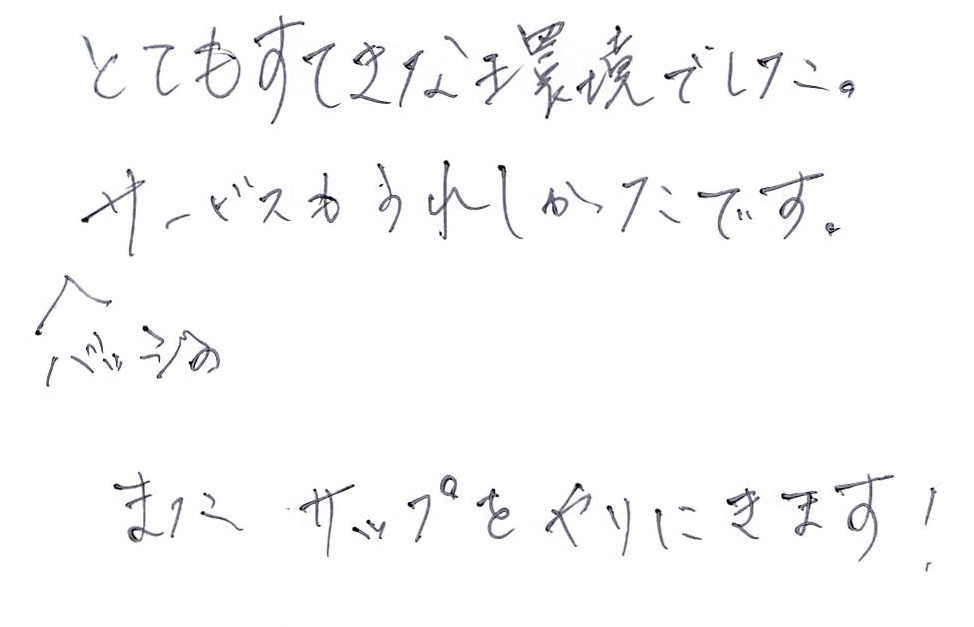 とてもすてきな環境でした。
サービスもうれしかったです。
バッジの
また サップをやりにきます!